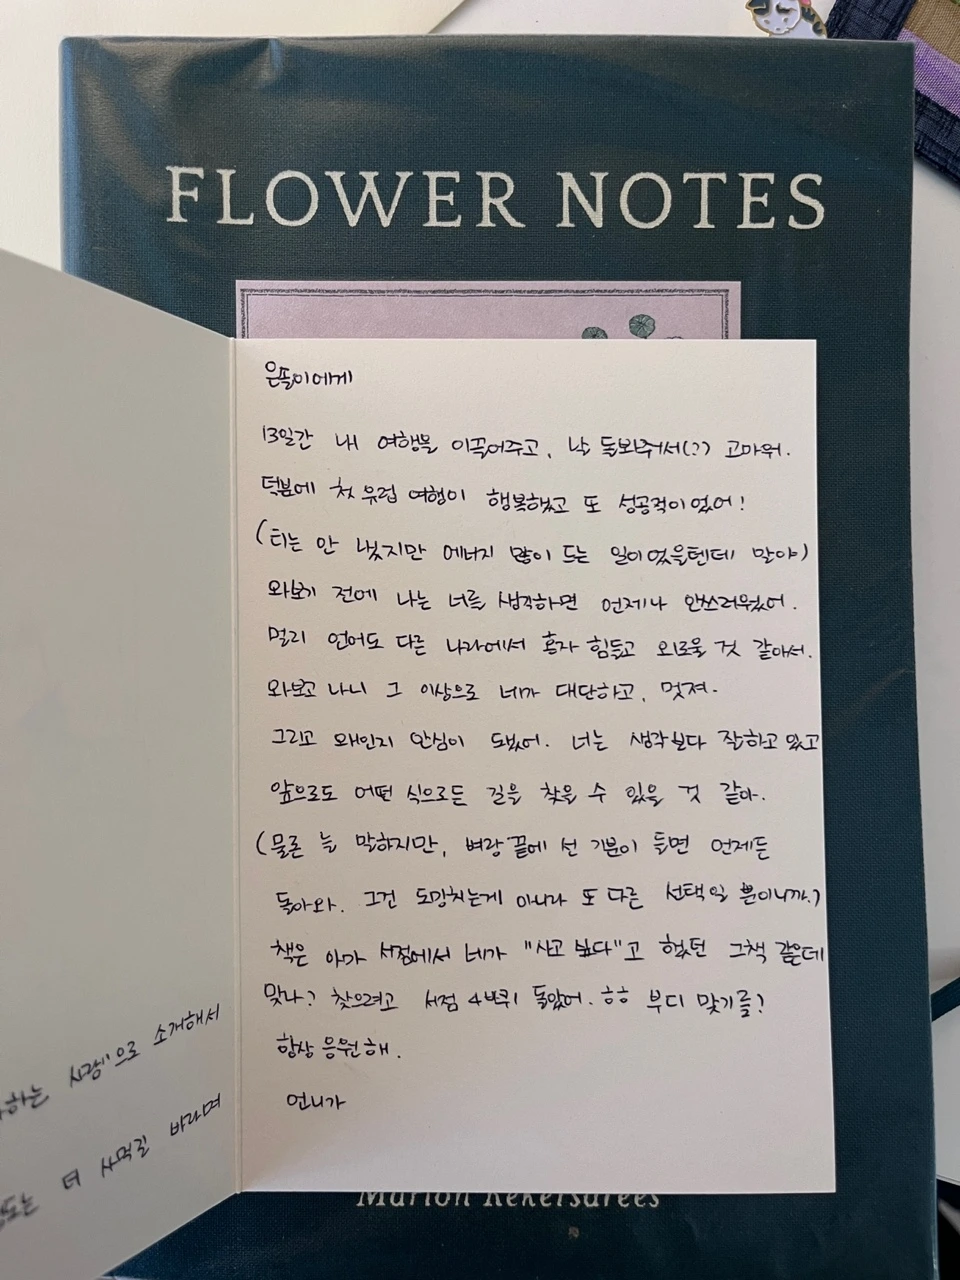 FLOWER NOTES
은돌이에게
13일간 내 여행을 이끌어주고, 날 돌봐줘서(??) 고마워.
덕분에 첫 유럽 여행이 행복했고 또 성공적이었어!
(티는 안 냈지만 에너지 많이 드는 일이었을텐데 말야)
와보기 전에 나는 너를 생각하면 언제나 안쓰러웠어.
멀리 언어도 다른 나라에서 혼자 힘들고 외로울 것 같아서.
와보고 나니 그 이상으로 네가 대단하고, 멋져.
그리고 왜인지 안심이 됐어. 너는 생각보다 잘하고 있고
앞으로도 어떤 식으로든 길을 찾을 수 있을 것 같아.
(물론 늘 말하지만, 벼랑 끝에 선 기분이 들면 언제든
돌아와. 그건 도망치는게 아니라 또 다른 선택일 뿐이니까.)
책은 아까 서점에서 네가 "사고 싶다"고 했던 그책 같은데
맞나? 찾으려고 서점 4바퀴 돌았어. ㅎㅎ 부디 맞기를?
항상 응원해.
언니가
하는 사람"으로 소개해서
더 사먹길 바라며